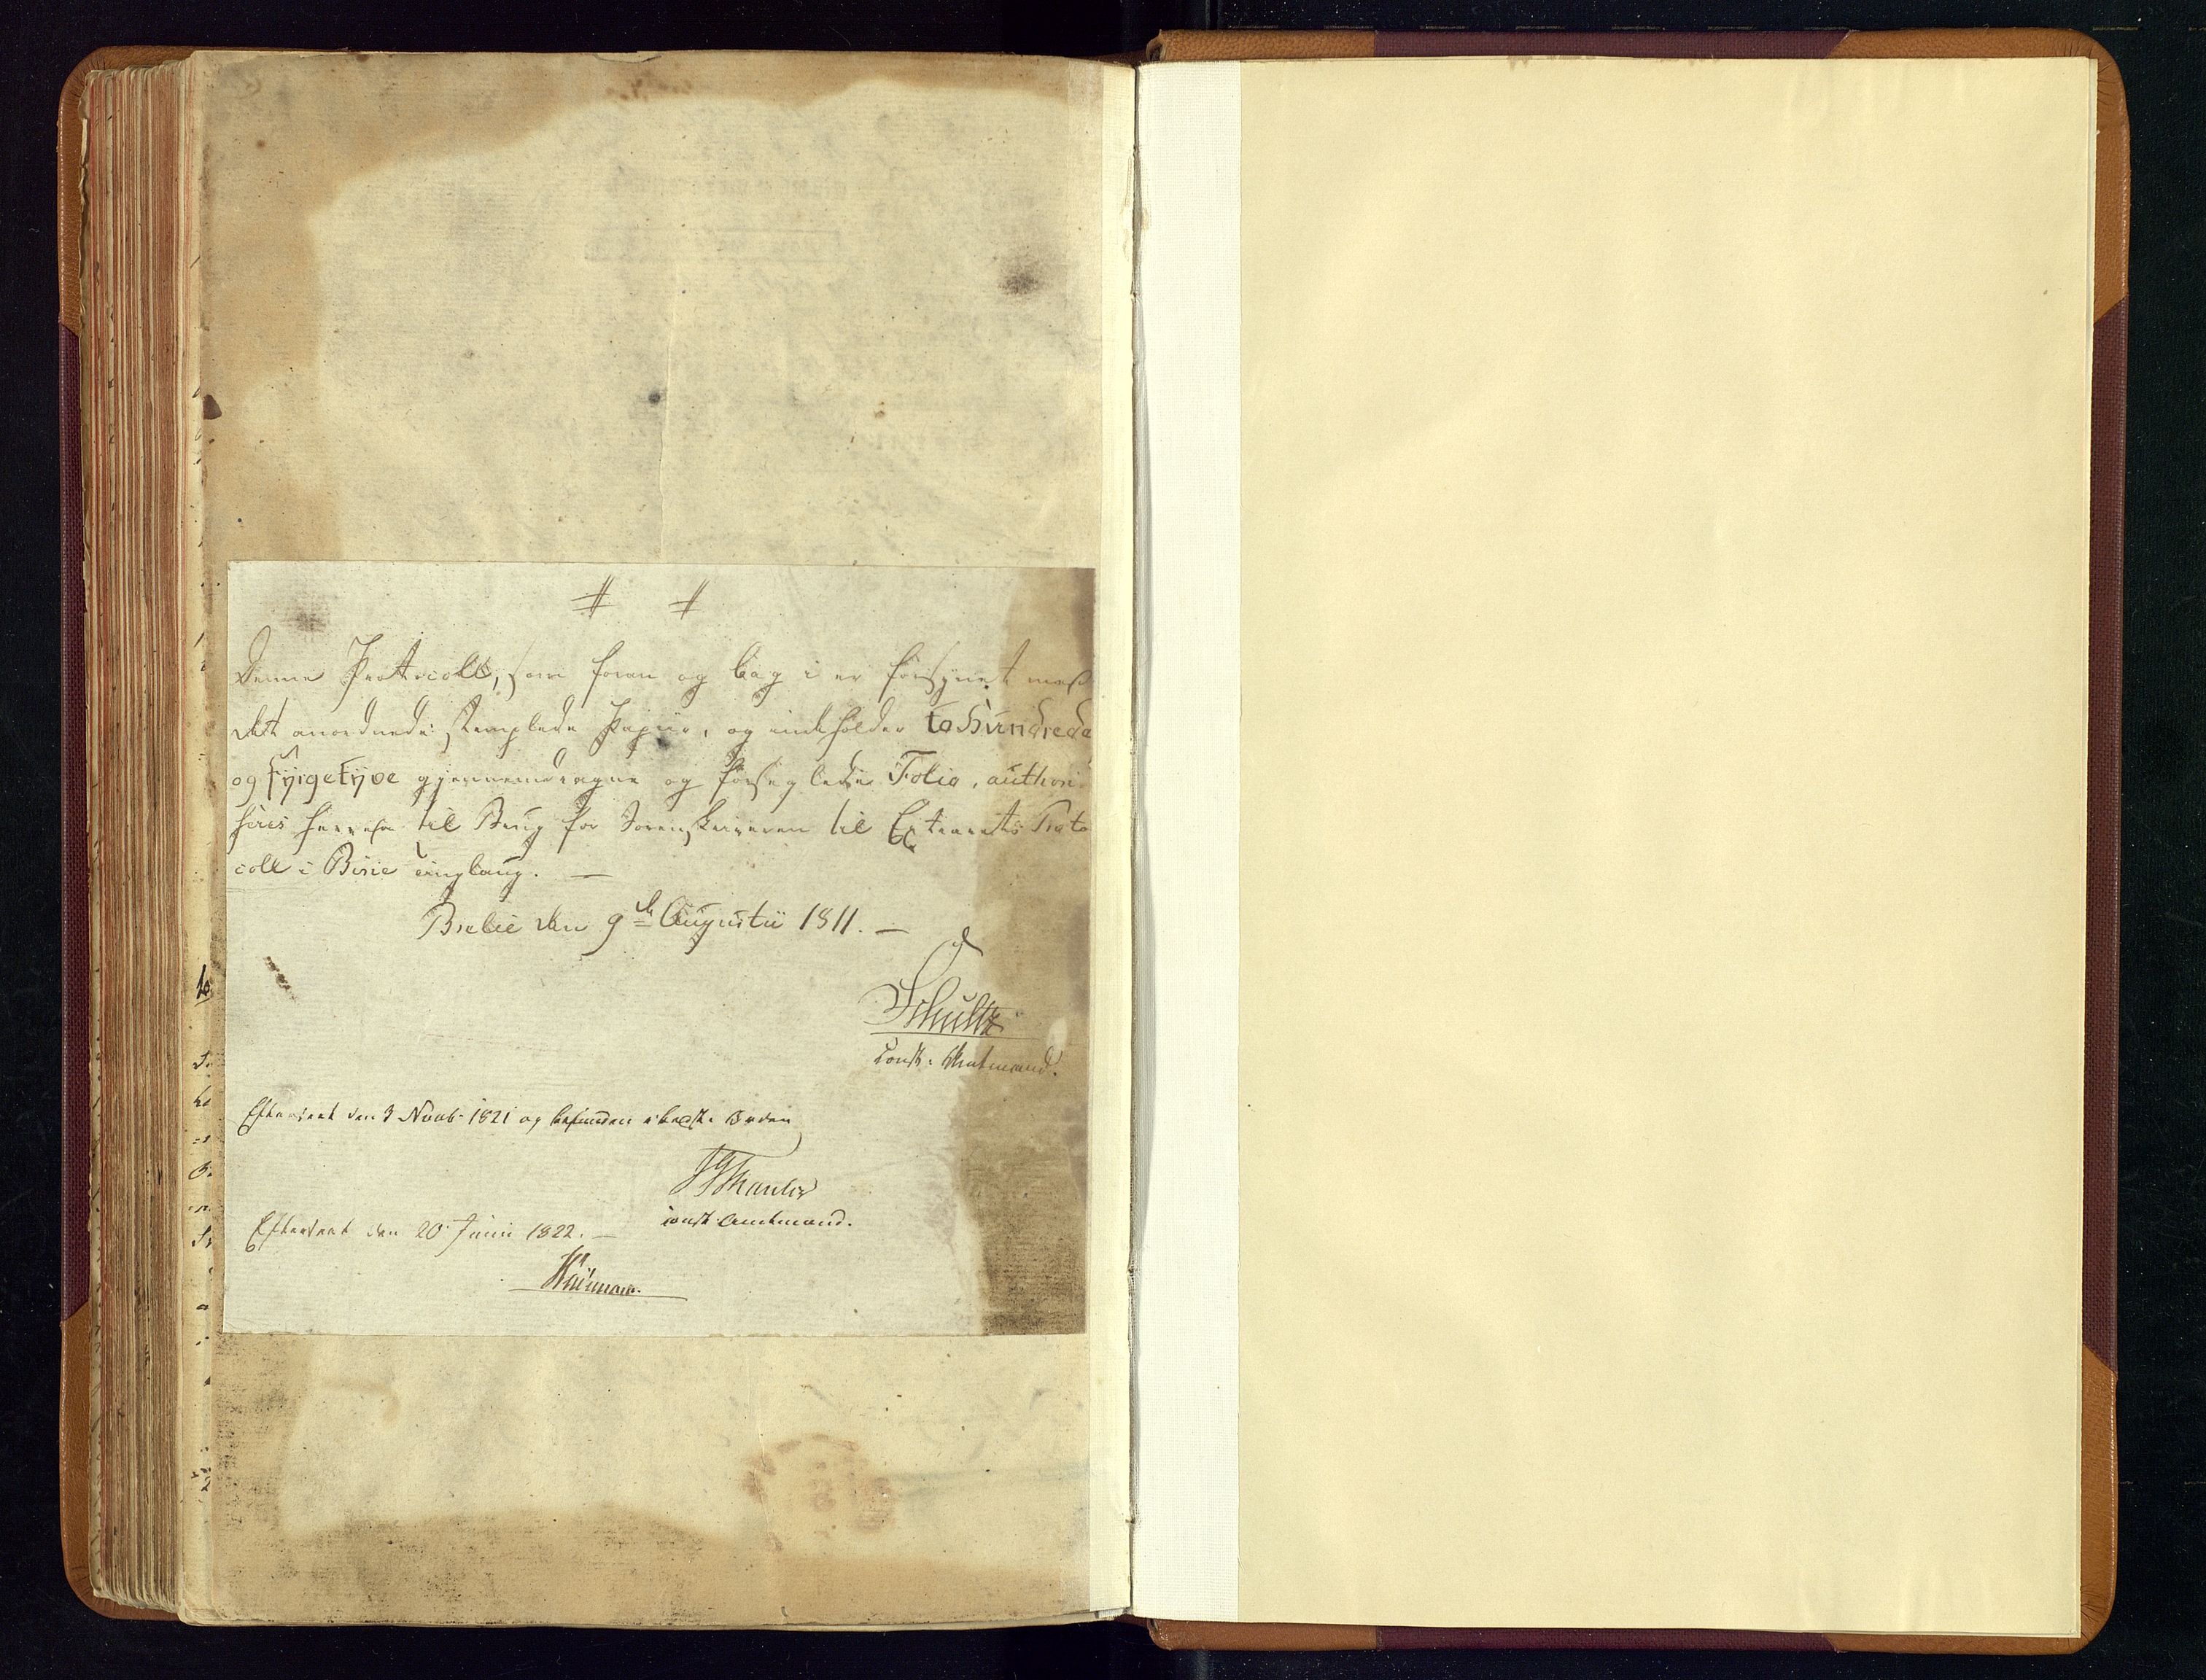 Denne Protocoll, som foran og bag i er forsynet med
det anordnede stemplede Papiir, og indeholder to Hundrede
og fyrgetyve gjennemdragne og forseglede Folio, authori
seres herved til Brug for Sorenskriveren til Extrarets Proto
coll i Birie Tinglaug. —
den 9de Augustii 1811. —
Schultz
const: Amtmand.
Efterseet den 3 Novb. 1821 og befunden i bedste Orden
const. Amtmand.
Efterseet den 20 Juni 1822. —